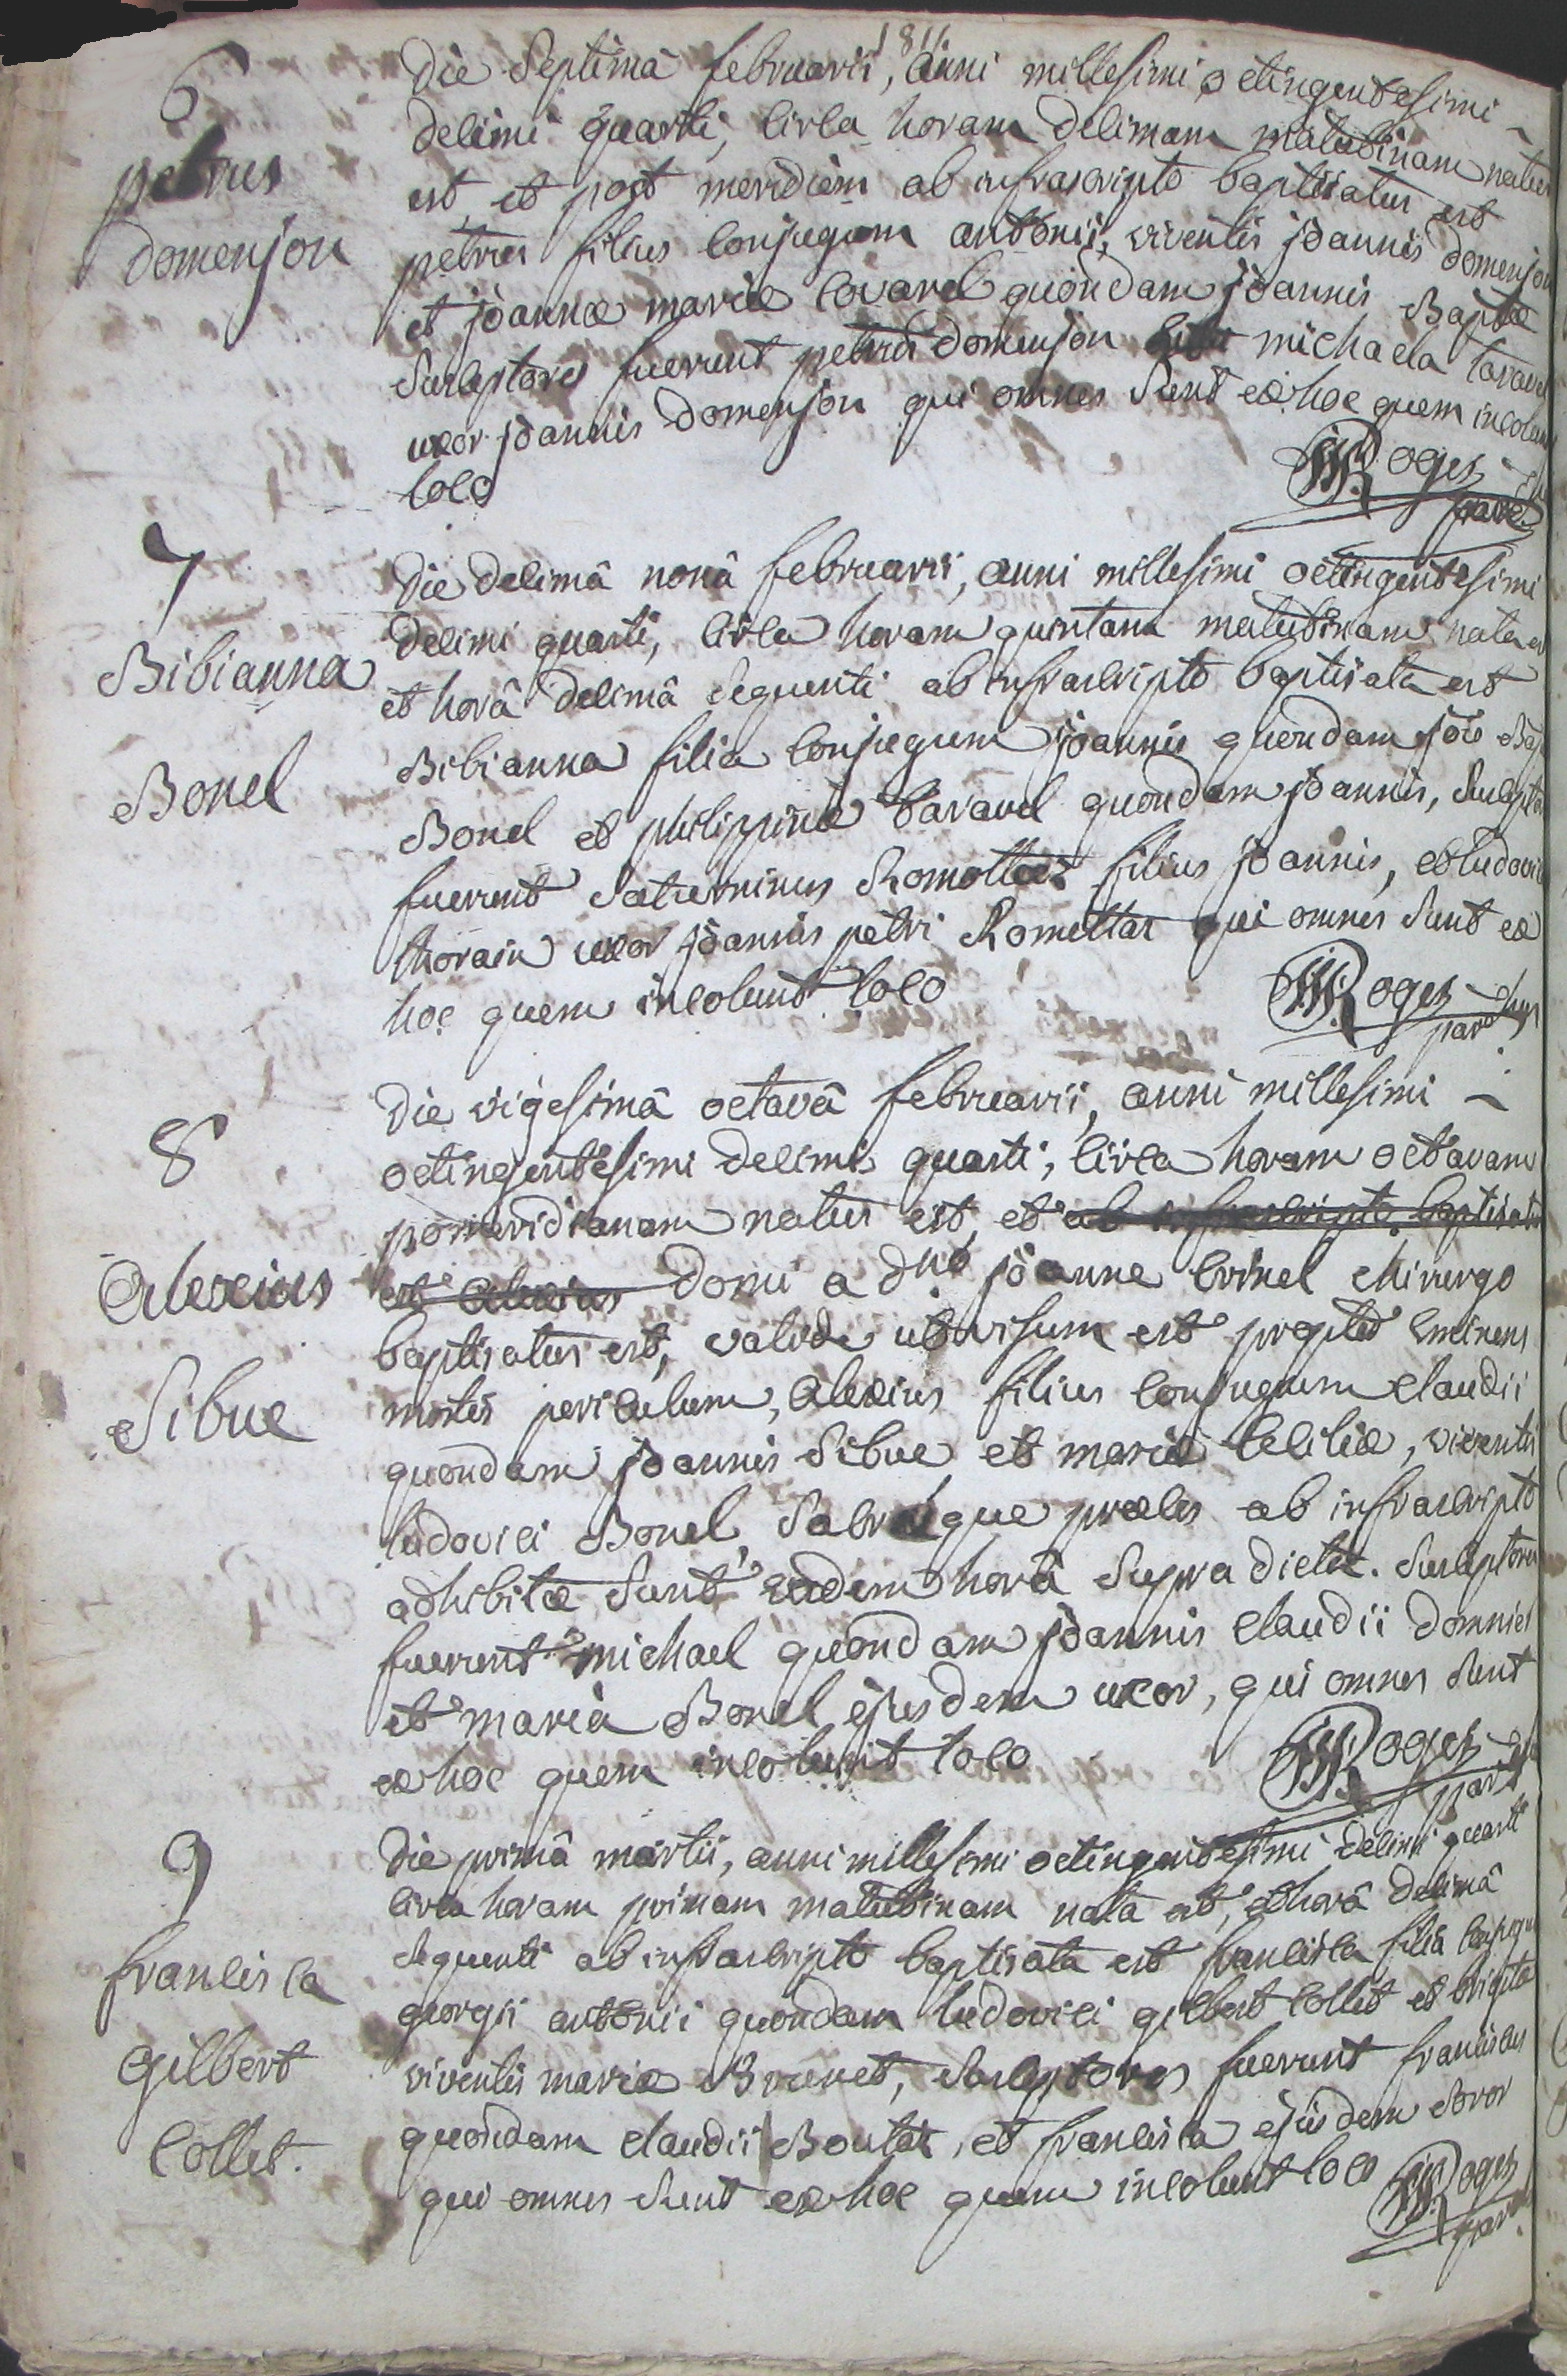 1814
6
petrus
domenjon
Die Septimâ februarii, anni millesimi octingentesimi
decimi quarti, circa horam decimam matutinam natus
est, et post meridiem ab infrascripto baptisatus est
petrus filius conjugum antonii, viventis joannis domenjon
et joannæ mariæ covarel quondam joannis Baptæ
Susceptores fuerunt petrus domenjon michaela
uxor joannis domenjon qui omnes Sunt ex hoc quem incolunt
loco
Roges
7
Bibianna
Bonel
Die decimâ nonâ februarii, anni millesimi octingentesimi
decimi quarti, circa horam quintam matutinam nata est
et horâ decimâ Sequenti ab infrascripto baptisata est
Bibianna filia conjugum joannis quondam jois Bap
Bonel et philippinæ bavarel quondam joannis, Suscept
fuerunt Saturninus Romottas filius joannis, et ludovica
thorain uxor joannis petri Romettas qui omnes Sunt ex
hoc quem incolunt loco
Roges
parochus
8
Alexius
Sibue
Die vigesimâ octavâ februarii, anni millesimi
octingentesimi decimi quarti, circa horam octavam
pomeridianam natus est, et ab infrascripto baptisatus
est Alexius domi a dno joanne crinel chirurgo
baptisatus est, valide ut visum est propter eminens
mortis periculum, Alexius filius conjugum claudii
quondam joannis Sibue et mariæ Ceciliæ, viventis
ludovici Bonel, Sacræque preces ab infrascripto
adhibitæ Sunt eadem horâ Supra dictâ. Susceptores
fuerunt michael quondam joannis claudii domnier
et maria Bonel ejusdem uxor, qui omnes Sunt
ex hoc quem incolunt loco
Roges
9
francisca
gilbert
collet.
Die primâ martii, anni millesimi octingentesimi decimi quarti
circa horam primam matutinam nata est, et horâ decimâ
Sequenti ab infrascripto baptisata est francisca filia conjugum
georgii antonii quondam ludovici gilbert collet et brigitæ
viventis mariæ Brunet, Susceptores fuerunt franciscus
quondam claudii Boutas, et francisca ejusdem Soror
qui omnes Sunt ex hoc quem incolunt loco
Roges